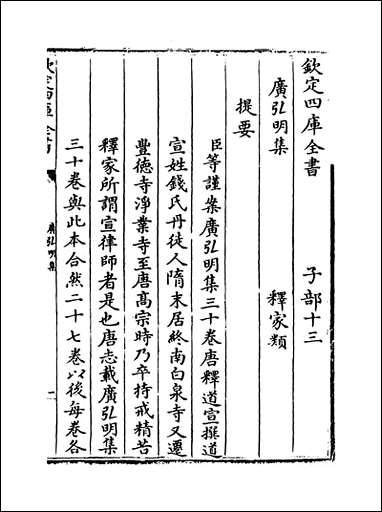 欽定四庫全書 子部十三
廣弘明集 釋家類
提要
臣等謹案廣弘明集三十卷唐釋道宣撰道
宣姓錢氏丹徒人隋末居終南白泉寺又遷
豐德寺淨業寺至唐髙宗時乃卒持戒精苦
釋家所謂宣律師者是也唐志載廣弘明集
三十卷與此本合然二十七卷以後每卷各
廣弘明集